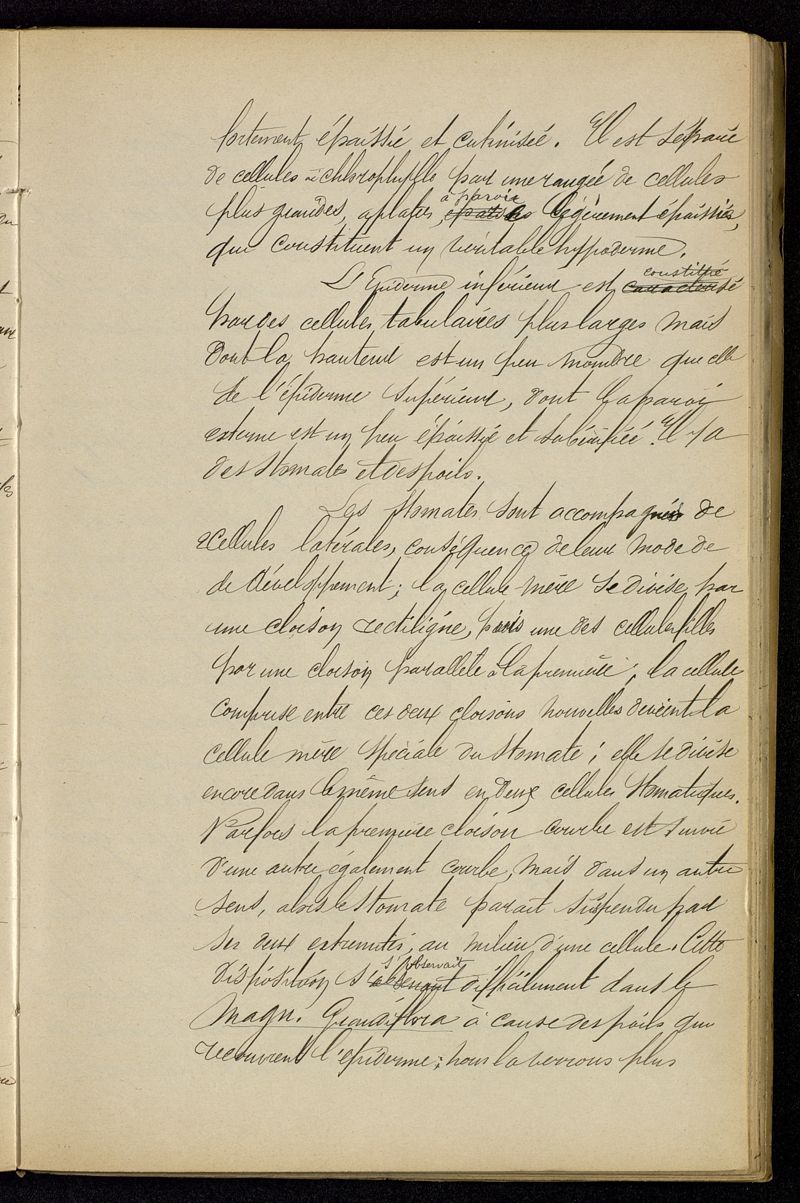 fortement épaissie et cutinisée. Il est séparé
de cellules à chlorophylle par une rangée de cellules
plus grandes, aplaties, à parois légèrement épaissies,
qui constituent un véritable hypoderme.
L'Epiderme inférieur est constitué
par des cellules tabulaires plus larges mais
dont la hauteur est un peu moindre que celle
de l'épiderme supérieur, dont la paroi
externe est un peu épaissie et subérifiée. Il y a
des stomates et des poils.
Les stomates sont accompagnés de
2 cellules latérales, conséquence de leur mode de
de développement; la cellule mère se divise par
une cloison rectiligne, puis une des cellules filles
par une cloison parallèle à la première; la cellule
comprise entre ces deux cloisons nouvelles devient la
cellule mère spéciale du stomate; elle se divise
encore dans le même sens en deux cellules stomatiques.
Parfois la première cloison courbe est suivie
d'une autre également courbe, mais dans un autre
sens, alors le stomate parait suspendu par
ses deux extremités, au milieu d'une cellule. Cette
disposition s'observait difficilement dans le
Magn. Grandiflora à cause des poils qui
recouvrent l'épiderme; nous la verrons plus